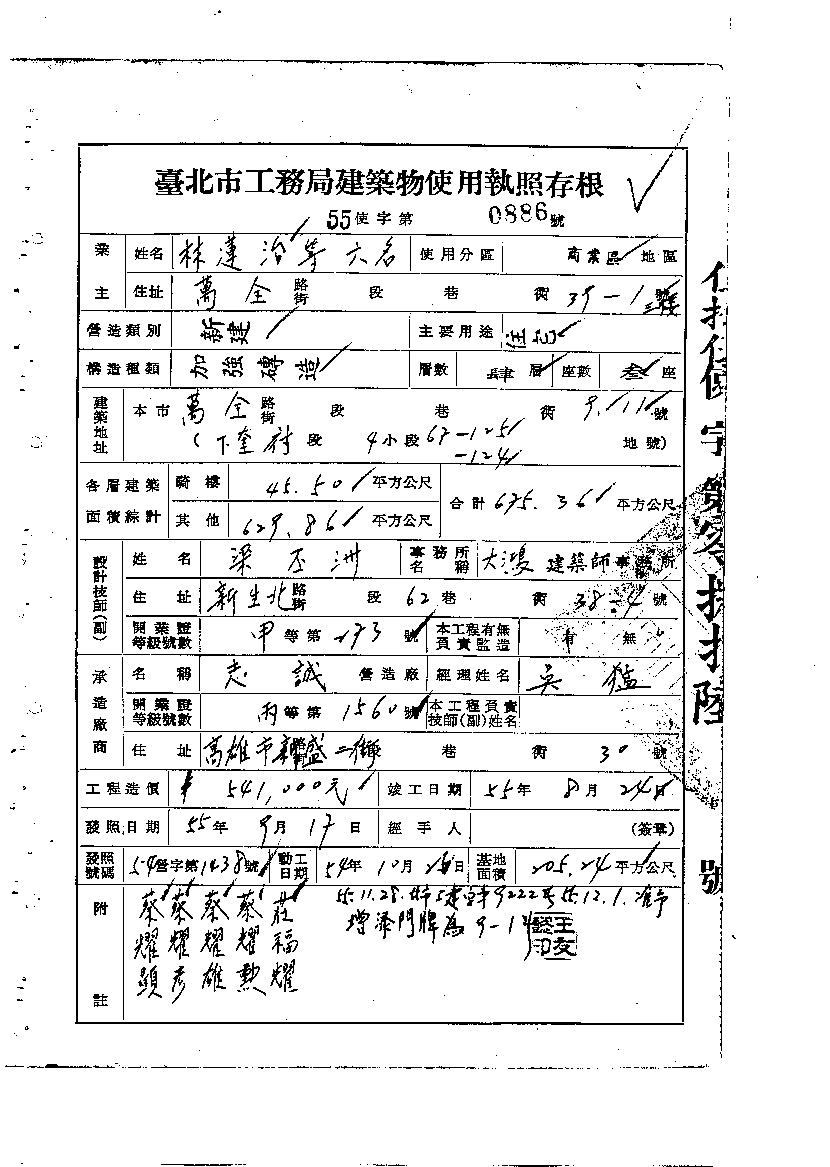 臺北市工務局建築物使用執照存根
55使字第 0886號
業主 姓名 林蓮治等六名 使用分區 商業區 地區
住址 萬全 路街 段 巷 衖 39-1 號
營造類別 新建 主要用途 住宅
構造種類 加強磚造 層數 肆層 座數 叁座
建築地址 本市 萬全 路街 段 巷 衖 9.11 號
(下奎府段 4小段 67-125 地號)
-124
各層建築面積綜計 騎樓 45.50 平方公尺 合計 675.36 平方公尺
其他 629.86 平方公尺
設計技師(副) 姓名 梁丕洲 事務所名稱 大鴻 建築師事務所
住址 新生北 路街 段 62巷 衖 38-4 號
開業證等級號數 甲等第 173 號 本工程有無負責監造 有 無
承造廠商 名稱 志誠 營造廠 經理姓名 吳猛
開業證等級號數 丙等第 1560號 本工程負責技師(副)姓名
住址 高雄市新盛二街 巷 衖 30 號
工程造價 541,000元 竣工日期 55年 8月 24日
發照日期 55年 9月 17日 經手人 (簽章)
發照號碼 54營字第1438號 動工日期 54年 10月 日 基地面積 205.24 平方公尺
附註 蔡耀顕 蔡耀彥 蔡耀雄 蔡耀勲 莊福耀
55.11.28. 9222 55.12.1.准予
增添門牌為 9-1